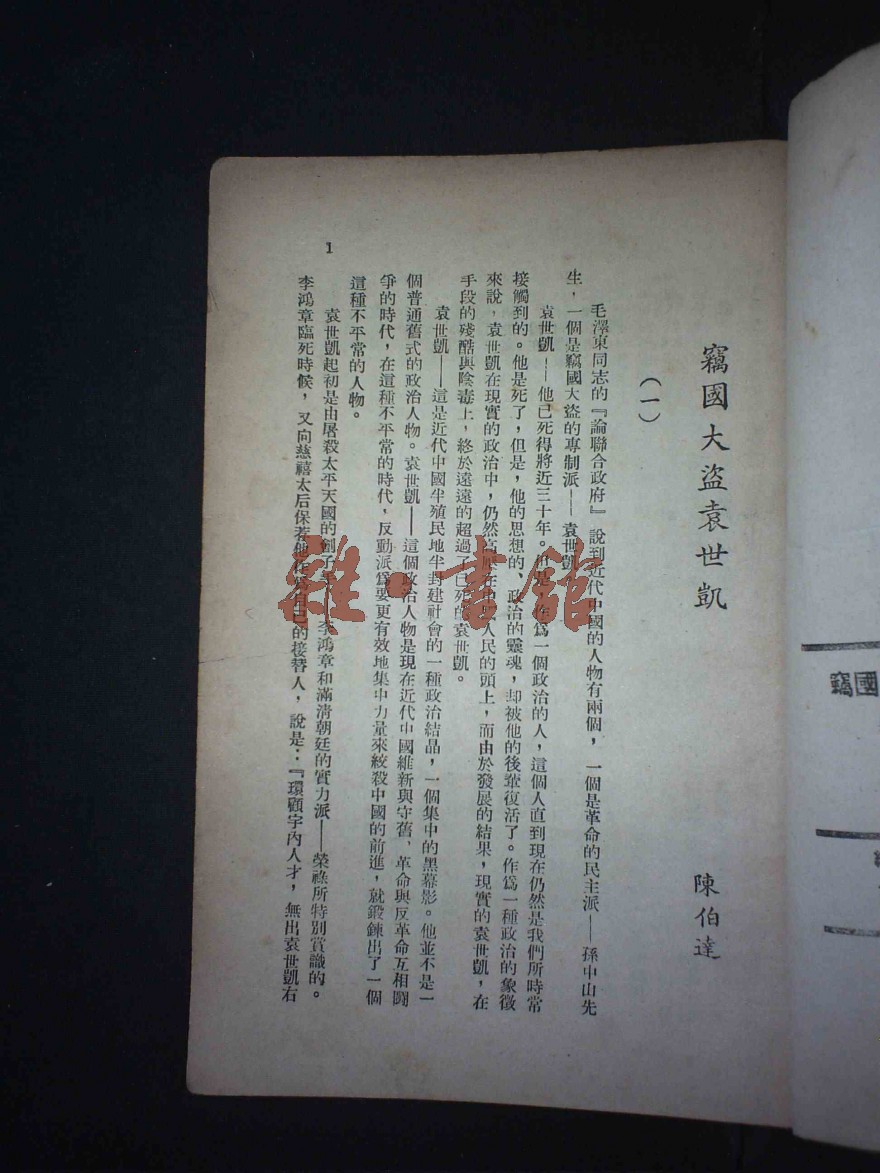 竊國大盜袁世凱
陳伯達
（一）
毛澤東同志的『論聯合政府』說到近代中國的人物有兩個，一個是革命的民主派——孫中山先
生，一個是竊國大盜的專制派——袁世凱
袁世凱——他已死得將近三十年。但是，作爲一個政治的人，這個人直到現在仍然是我們所時常
接觸到的。他是死了，但是，他的思想的、政治的靈魂，却被他的後輩復活了。作爲一種政治的象徵
來說，袁世凱在現實的政治中，仍然高壓在中國人民的頭上，而由於發展的結果，現實的袁世凱，在
手段的殘酷與陰毒上，終於遠遠的超過了已死的袁世凱。
袁世凱——這是近代中國半殖民地半封建社會的一種政治結晶，一個集中的黑幕影。他並不是一
個普通舊式的政治人物。袁世凱——這個政治人物是現在近代中國維新與守舊、革命與反革命互相鬪
爭的時代，在這種不平常的時代，反動派爲要更有效地集中力量來絞殺中國的前進，就鍛鍊出了一個
這種不平常的人物。
袁世凱起初是由屠殺太平天國的劊子手 李鴻章和滿清朝廷的實力派——榮祿所特別賞識的。
李鴻章臨死時候，又向慈禧太后保荐他作爲自己的接替人，說是：『環顧宇內人才，無出袁世凱右
1
雜·書館
竊國